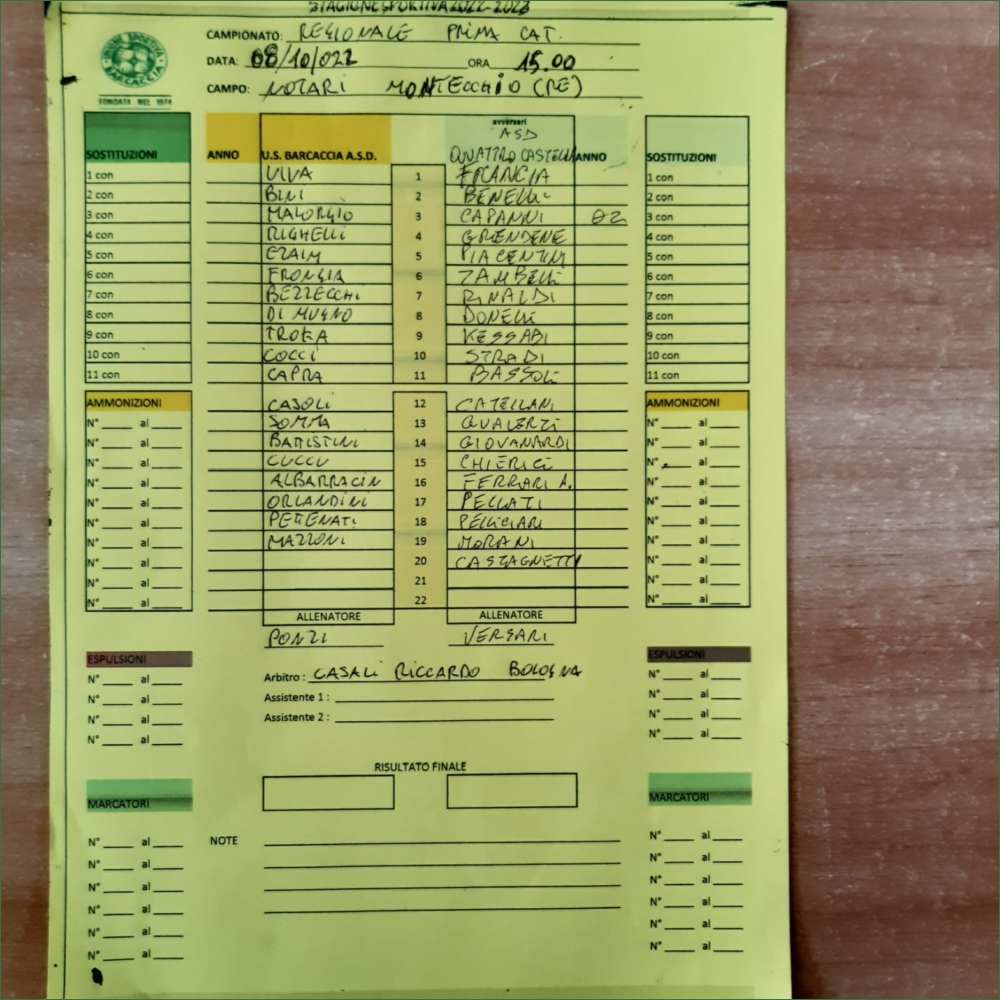 STAGIONE SPORTIVA 2022-2023
UNIONE SPORTIVA BARCACCIA
FONDATA NEL 1974
CAMPIONATO: REGIONALE PRIMA CAT.
DATA: 08/10/022 ORA 15.00
CAMPO: NOTARI MONTECCHIO (RE)
avversari
ASD
SOSTITUZIONI ANNO U.S. BARCACCIA A.S.D. QUATTRO CASTELLA ANNO SOSTITUZIONI
1 con VIVA 1 FRANCIA 1 con
2 con BINI 2 BENELLI 2 con
3 con MAIORGIO 3 CAPANNI 02 3 con
4 con RIGHELLI 4 GRENDENE 4 con
5 con EZAIM 5 PIACENTINI 5 con
6 con FRONGIA 6 ZAMBELLI 6 con
7 con BEZZECCHI 7 RINALDI 7 con
8 con DI MURNO 8 DONELLI 8 con
9 con 9 KESSABI 9 con
10 con COCCI 10 STRADI 10 con
11 con CAPRA 11 BASSOLI 11 con
AMMONIZIONI CASOLI 12 CATELLANI AMMONIZIONI
N° al SOMMA 13 GUALERZI N° al
N° al BATTISTINI 14 GIOVANARDI N° al
N° al CUCCU 15 CHIERICI N° al
N° al ALBARRACIN 16 FERRARI A. N° al
N° al ORLANDINI 17 PELLATI N° al
N° al PETENATI 18 PELLICIARI N° al
N° al MAZZONI 19 MORANI N° al
N° al 20 CASTAGNETTI N° al
N° al 21 N° al
N° al 22 N° al
ALLENATORE ALLENATORE
PONZI VERSARI
ESPULSIONI ESPULSIONI
N° al Arbitro : CASALI RICCARDO BOLOGNA N° al
N° al Assistente 1 : N° al
N° al Assistente 2 : N° al
N° al N° al
RISULTATO FINALE
MARCATORI MARCATORI
N° al NOTE N° al
N° al N° al
N° al N° al
N° al N° al
N° al N° al
N° al N° al